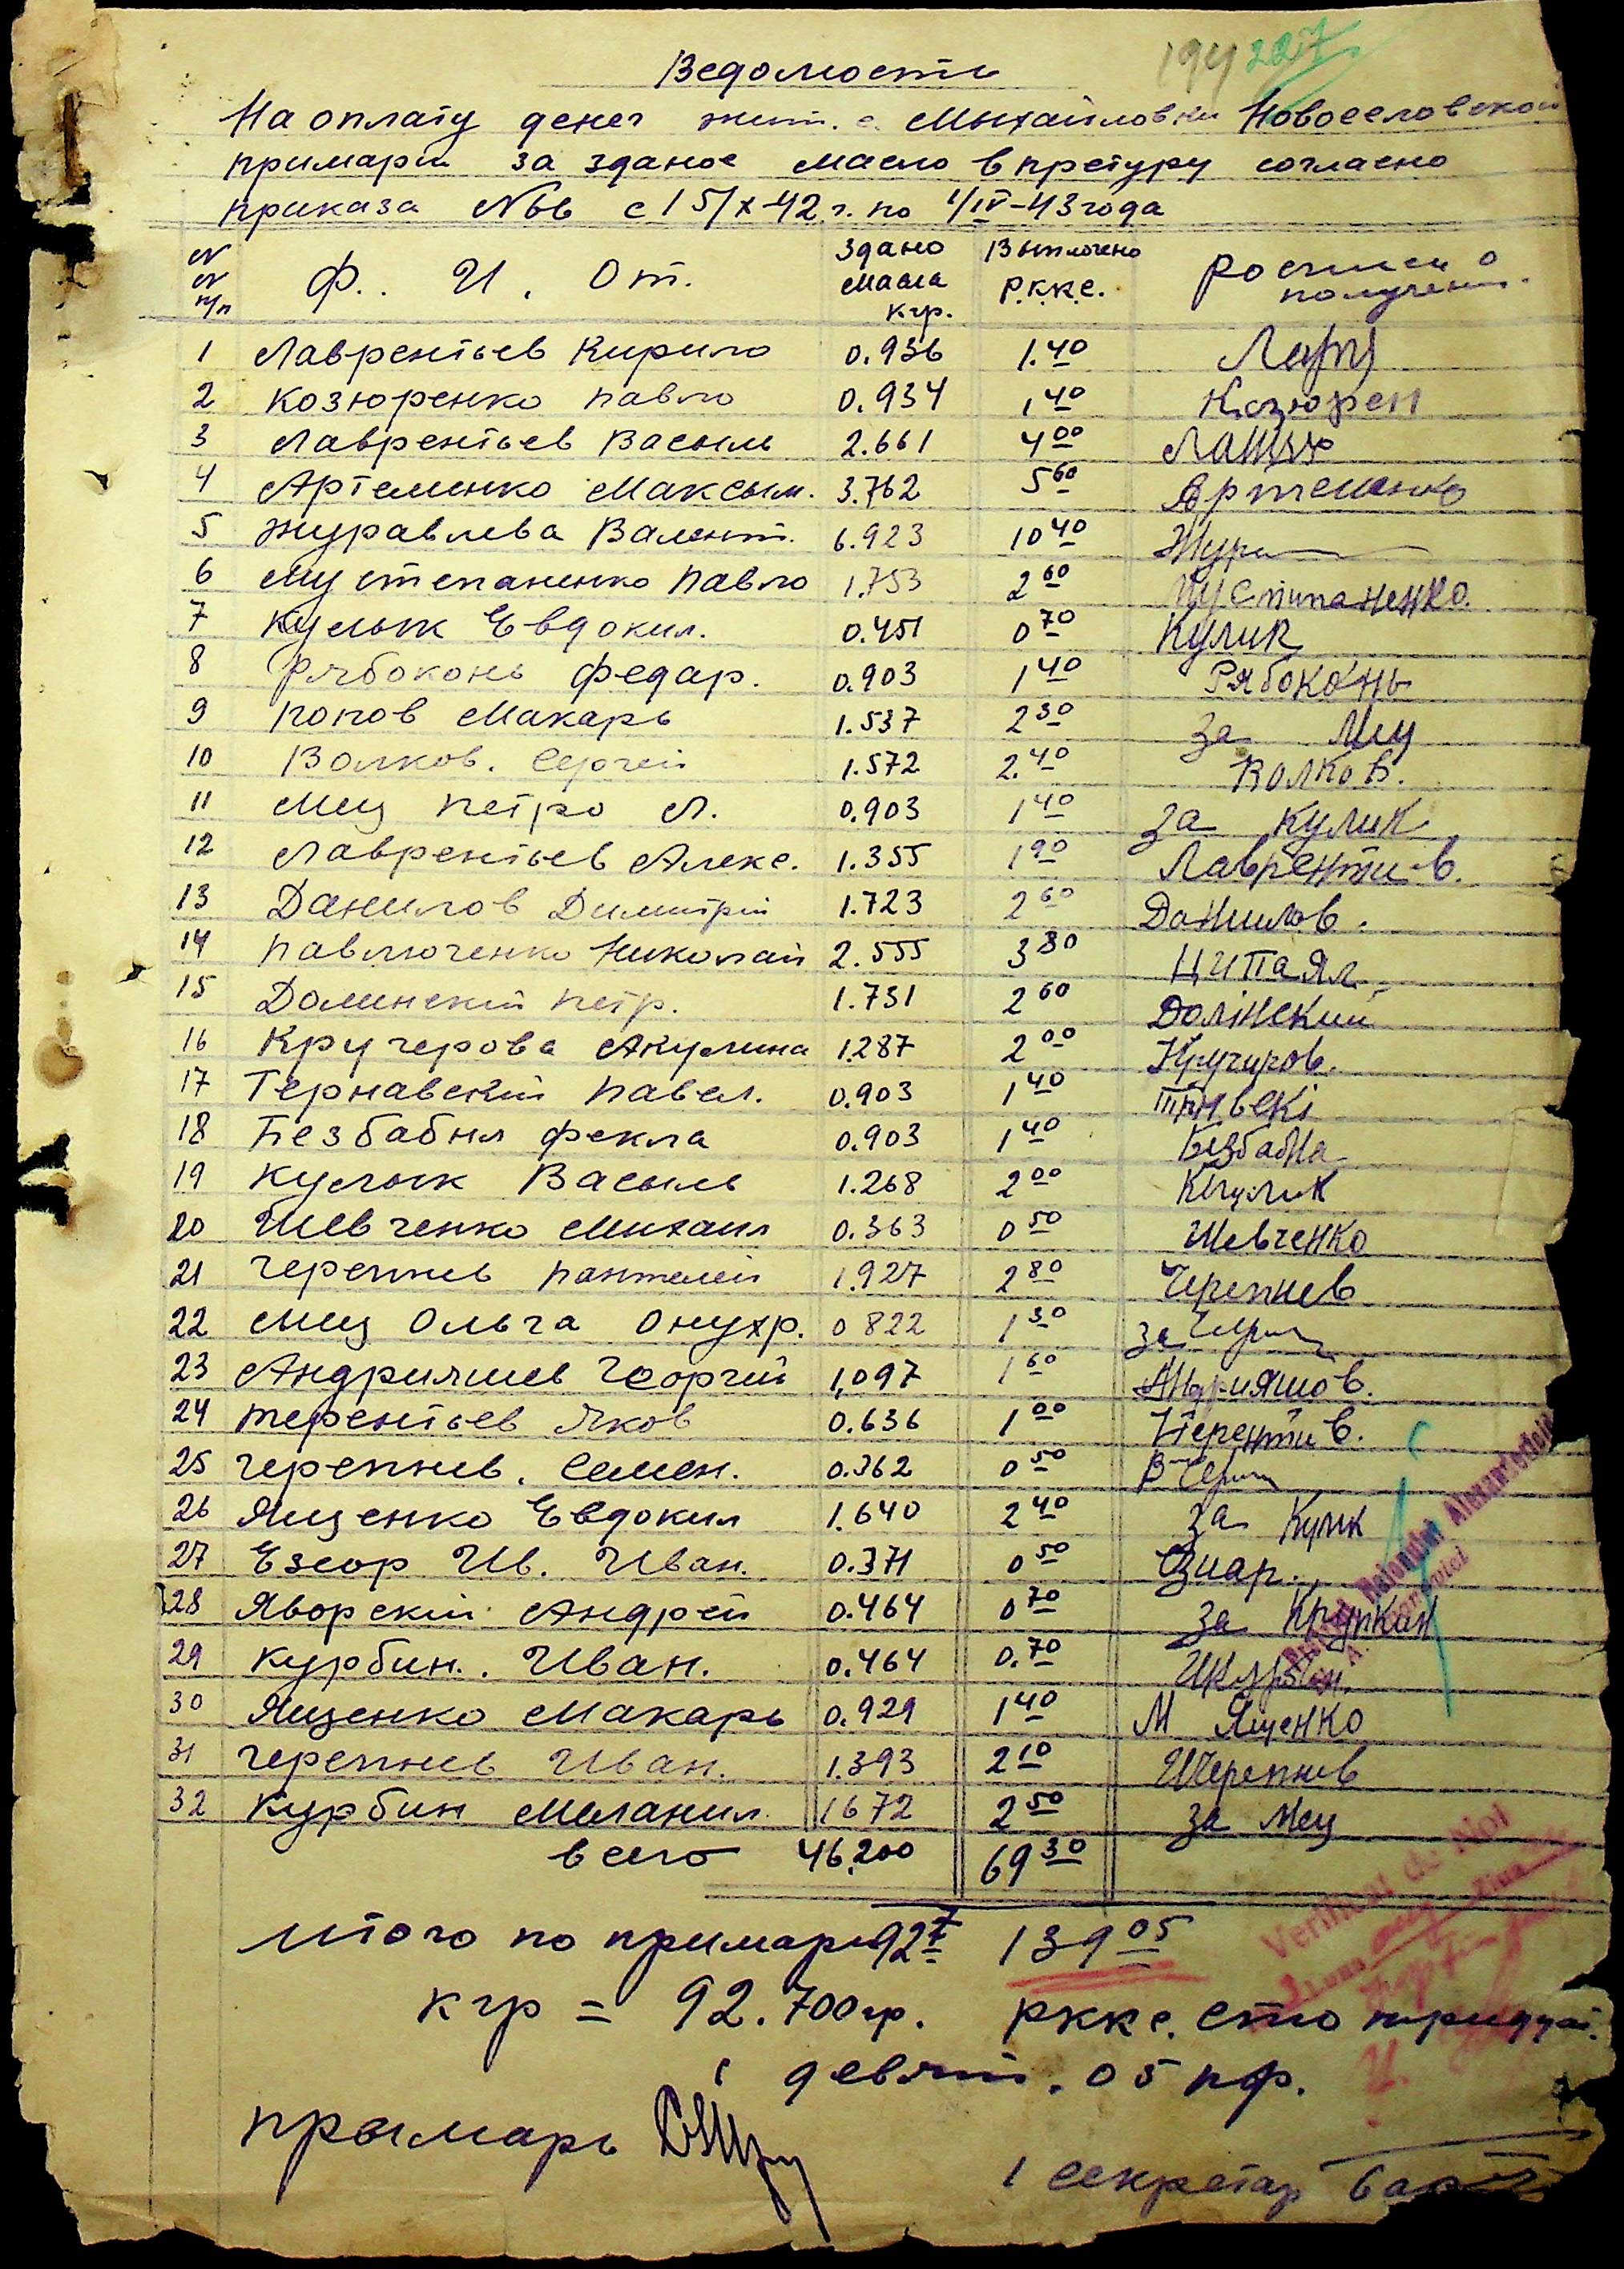 194 2217
Ведомость
На оплату денег жит. с. Мыхайловки Новоселовской
примарии за зданое масло в претуру согласно
приказа №66 с 15/X-42 г. по 1/IV-43 года
№ № п/п Ф. И. От. Здано масла кгр. Выплочено Р.К.К.С. Росписи о получени.
1 Лаврентьев Кирило 0.936 1.40
2 Козюренко Павло 0.934 1 40 Козюрен
3 Лаврентьев Васыль 2.661 4 00
4 Артеменко Максым. 3.762 5 60 Артеменко
5 Журавлева Валент. 6.923 10 40 Жура
6 Мустепаненко Павло 1.753 2 60 Мустипаненко.
7 Кулык Евдоким. 0.451 0 70 Кулик
8 Рябоконь Федар. 0.903 1 40 Рябоконь
9 Попов Макарь 1.537 2 30 За Мец
10 Волков. Сергей 1.572 2.40 Волков.
11 Мец Петро А. 0.903 1 40 За Кулик
12 Лаврентьев Алекс. 1.355 1 90 Лаврентив.
13 Данилов Димитрий 1.723 2 60 Данилов.
14 Павлюченко Николай 2.555 3 80
15 Долинский Петр. 1.731 2 60 Долінский
16 Кручерова Акулина 1.287 2 00 Кручиров.
17 Тернавский Павел. 0.903 1 40
18 Безбабня Фекла 0.903 1 40 Безбабна
19 Кулык Васыль 1.268 2 00 Кулик
20 Шевченко Михаил 0.363 0 50 Шевченко
21 Черепнев Пантелей 1.927 2 80 Черепнев
22 Мец Ольга Онухр. 0 822 1 30 За
23 Андрияшев Георгий 1,097 1 60 Андрияшов.
24 Терентьев Яков 0.636 1 00 Терентив.
25 Черепнев. Семен. 0.362 0 50
26 Ященко Евдоким 1.640 2 40 За Кулик
27 Езеор Ив. Иван. 0.371 0 50
28 Яворский Андрей 0.464 0 70 За
29 Курбин. Иван. 0.464 0.70 ИКурбин.
30 Ященко Макарь 0.929 1 40 М Ященко
31 Черепнев Иван. 1.393 2 10 ИЧерепнев
32 Курбин Мелания. 1 672 2 50 За Мец
всего 46,200 69 30
Итого по примари 92 7 139 05
кгр = 92.700гр. Рккс. сто тридцат.
і девят. 05 пф.
Прымарь
і секретар
Raionului
Verificat de Noi
Ziua